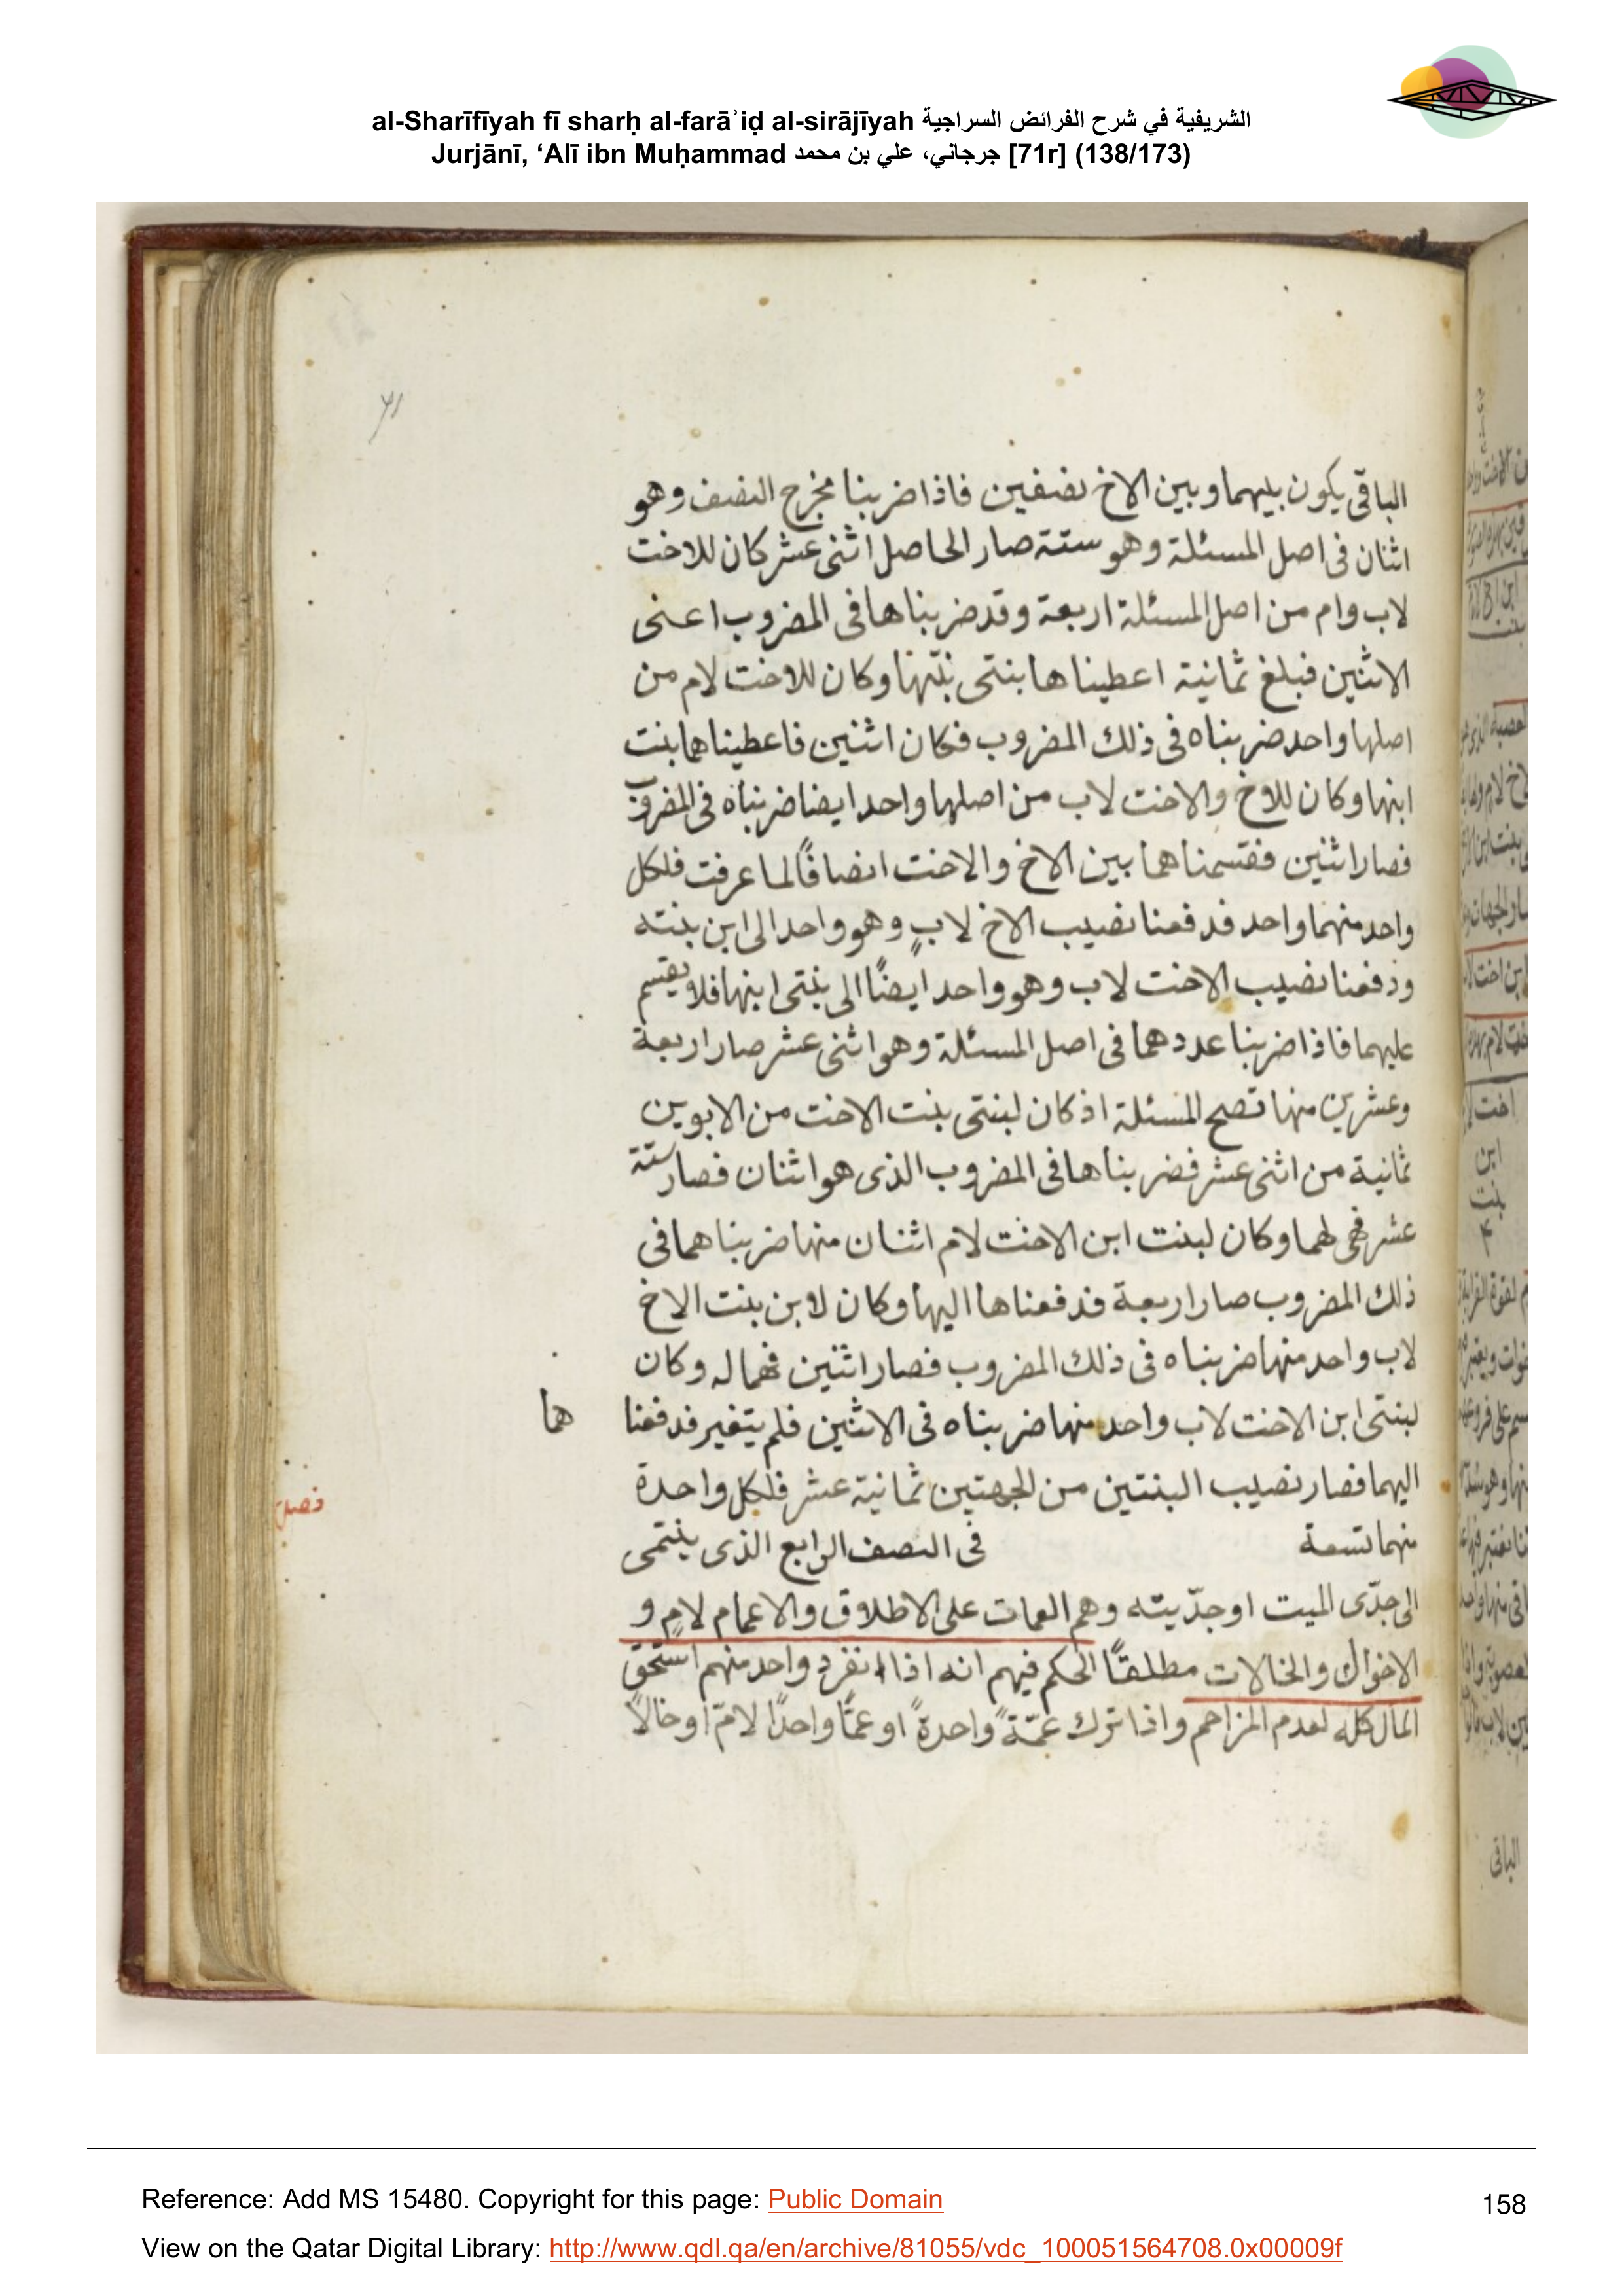 al-Sharīfīyah fī sharḥ al-farāʾiḍ al-sirājīyah الشريفية في شرح الفرائض السراجية
Jurjānī, ‘Alī ibn Muḥammad جرجاني، علي بن محمد [71r] (138/173)
٧١
الباقى يكون بينهما وبين الاخ نصفين فاذا ضربنا مخرج النصف وهو
اثنان فى اصل المسئلة وهو ستة صار الحاصل اثنى عشر كان للاخت
لاب وام من اصل المسئلة اربعة وقد ضربناها فى المضروب اعنى
الاثنين فبلغ ثمانية اعطيناها بنتى بنتها وكان للاخت لام من
اصلها واحد ضربناه فى ذلك المضروب فكان اثنين فاعطيناهما بنت
ابنها وكان للاخ والاخت لاب من اصلها واحد ايضا ضربناه فى المضروب
فصار اثنين فقسمناهما بين الاخ والاخت انصافًا لما عرفت فلكل
واحد منهما واحد فدفعنا نصيب الاخ لابٍ وهو واحد الى ابن بنته
ودفعنا نصيب الاخت لاب وهو واحد ايضًا الى بنتى ابنها فلا يقسم
عليهما فاذا ضربنا عددهما فى اصل المسئلة وهو اثنى عشر صار اربعة
وعشرين منها تصح المسئلة اذ كان لبنتى بنت الاخت من الابوين
ثمانية من اثنى عشر فضربناها فى المضروب الذى هو اثنان فصار ستة
عشر فهى لهما وكان لبنت ابن الاخت لام اثنان منها ضربناهما فى
ذلك المضروب صار اربعة فدفعناها اليها وكان لابن بنت الاخ
لاب واحد منها ضربناه فى ذلك المضروب فصار اثنين فهما له وكان
لبنتى ابن الاخت لاب واحد منها ضربناه فى الاثنين فلم يتغير فدفعنا هما
اليهما فصار نصيب البنتين من الجهتين ثمانية عشر فلكل واحدة
منهما تسعة فى الصنف الرابع الذى ينتمى
فصل
الى جدّى الميت او جدّيته وهم العمات على الاطلاق والاعمام لامٍ و
الاخوال والخالات مطلقًا الحكم فيهم انه اذا انفرد واحد منهم استحق
المال كله لعدم المزاحم واذا ترك عمّةً واحدةً او عمًّا واحدًا لامّ او خالًا
الباقى
Reference: Add MS 15480. Copyright for this page: Public Domain
158
View on the Qatar Digital Library: http://www.qdl.qa/en/archive/81055/vdc_100051564708.0x00009f